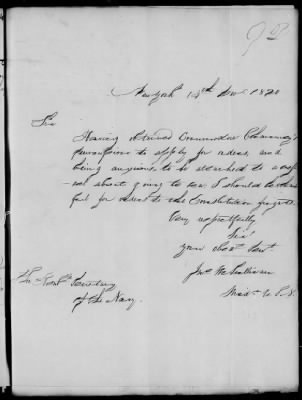 New York 14th Nov. 1820
Sir
Having obtained Commodore Chauncey's
permission to apply for orders, and
being anxious to be attached to a ves-
sel about going to sea, I should be thank
ful for orders to the Constitution frigate.
Very respectfully
Sir
your Obdt. Servt.
Jno.
Midn. U.S.N.
The Honble. Secretary
of the Navy.